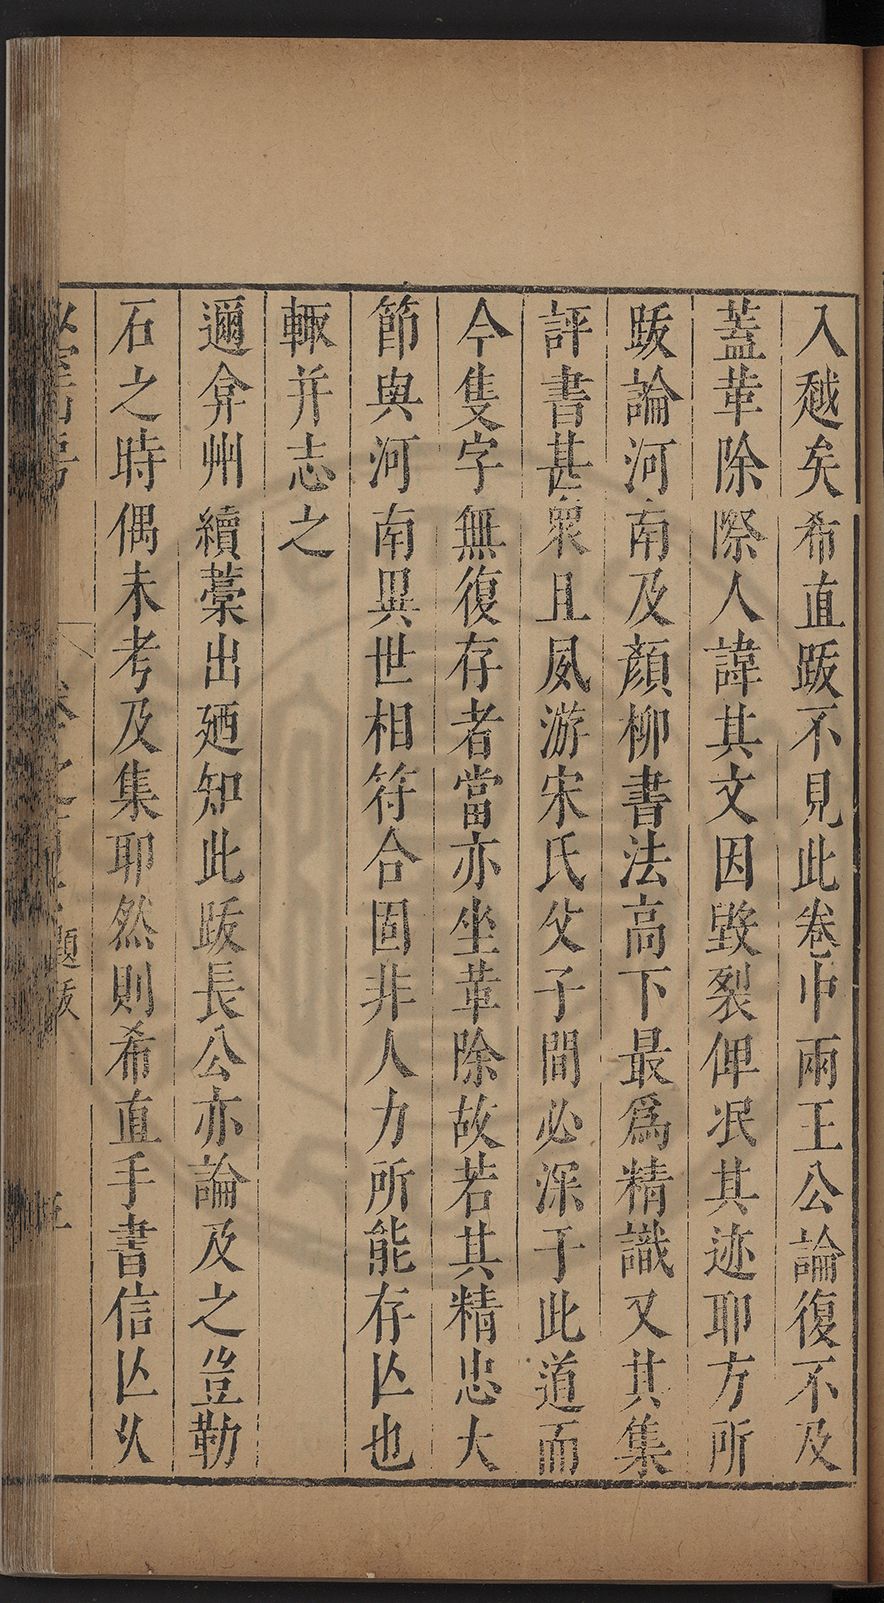 入越矣希直跋不見此卷中兩王公論復不及
蓋革除際人諱其文因毀裂俾泯其迹耶方所
跋論河南及顏柳書法高下最爲精識又其集
評書甚衆且夙游宋氏父子間必深于此道而
今隻字無復存者當亦坐革除故若其精忠大
節與河南異世相符合固非人力所能存亾也
輙并志之
邇弇州續藁出廼知此跋長公亦論及之豈勒
石之時偶未考及集耶然則希直手書信亾乆
卷之 題跋